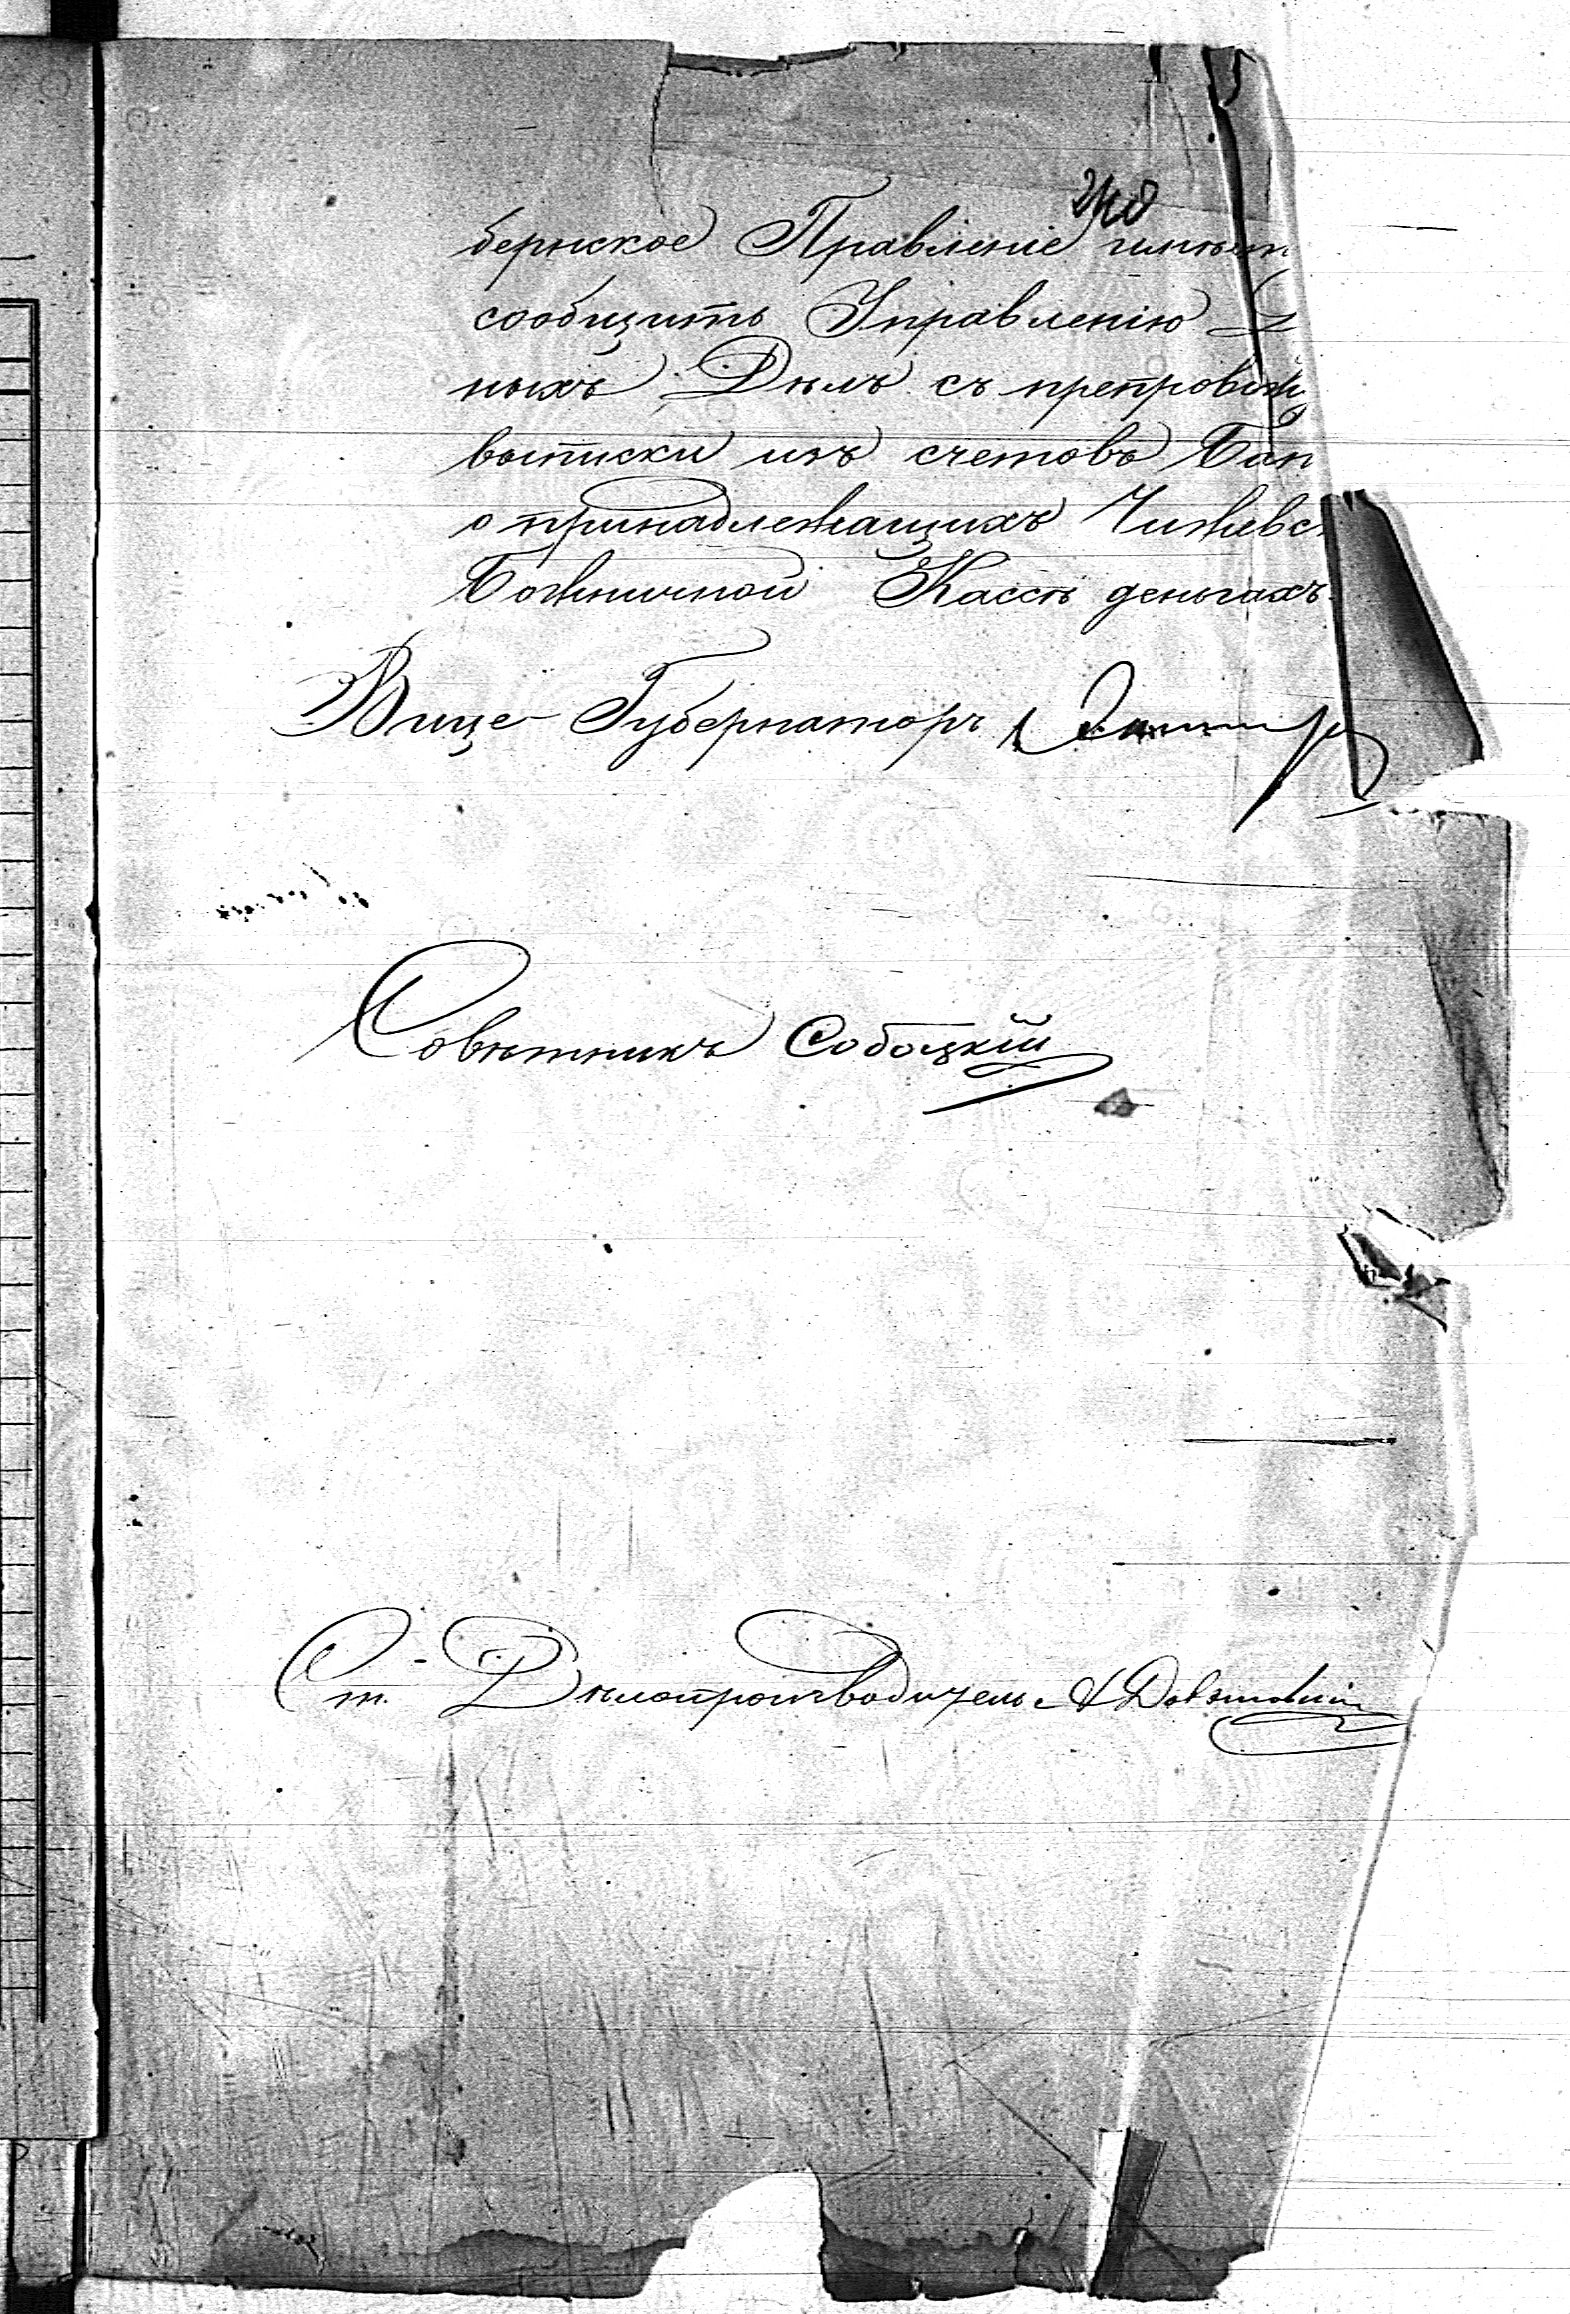 бернское Правленіе имѣет
сообщить Управленію
ныхъ Дѣлъ съ препровож
выписки изъ счетовъ Бан
о принадлежащихъ Чижевс
Божничной Кассѣ деньгахъ.
Вице-Губернаторъ
Совѣтникъ Собоцкій
Ст. Дѣлопроизводитель